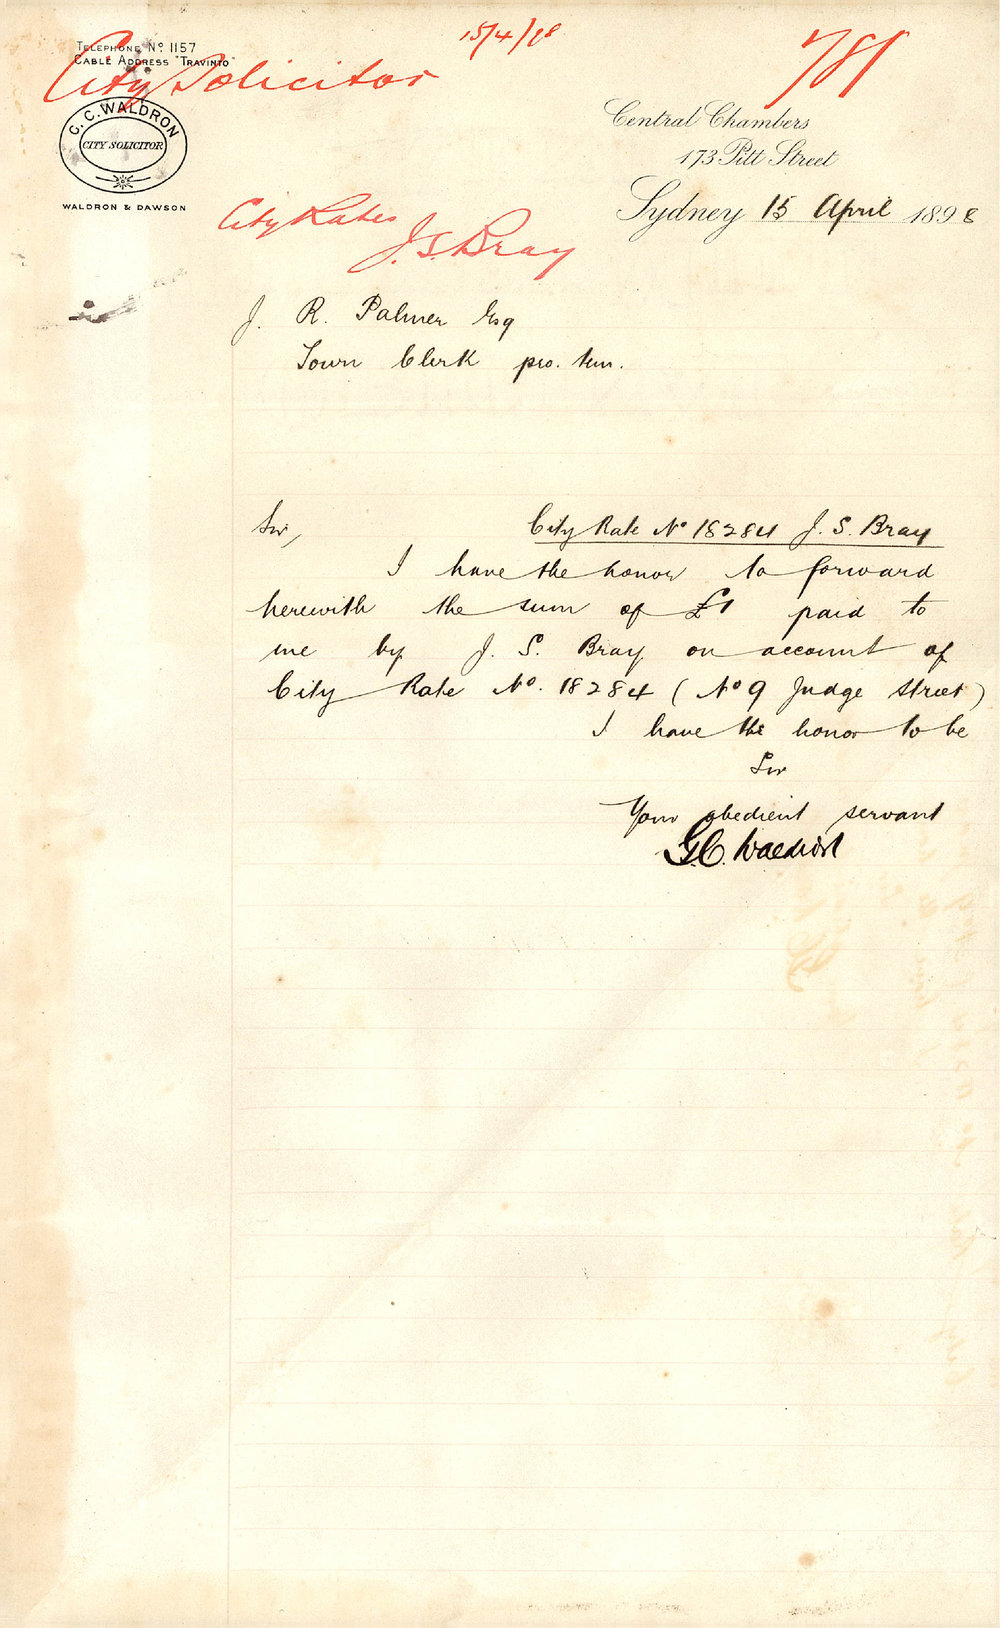 15/4/98
781
TELEPHONE Nº 1157
CABLE ADDRESS "TRAVINTO"
City Solicitor
C. C. WALDRON
CITY SOLICITOR
WALDRON & DAWSON
Central Chambers
173 Pitt Street
Sydney 15 April 1898
City Rates
J. S. Bray
J. R. Palmer Esq
Town Clerk pro. tem.
Sir,
City Rate Nº 18284 J. S. Bray
I have the honor to forward
herewith the sum of £1 paid to
me by J. S. Bray on account of
City Rate Nº. 18284 (Nº 9 Judge Street)
I have the honor to be
Sir
Your obedient servant
G.C. Waldron